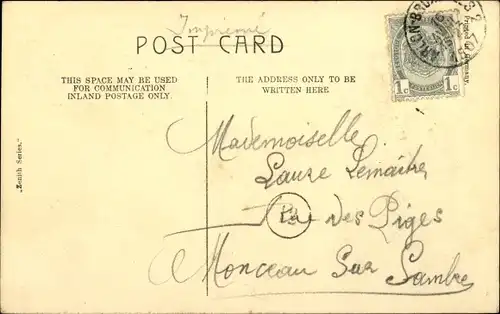 Imprimé
POST CARD
THIS SPACE MAY BE USED
FOR COMMUNICATION
INLAND POSTAGE ONLY.
THE ADDRESS ONLY TO BE
WRITTEN HERE
Printed in Germany
1c 1c
"Zenith Series."
Mademoiselle
Laure Lemaître
Rue des Piges
Monceau Sur Sambre